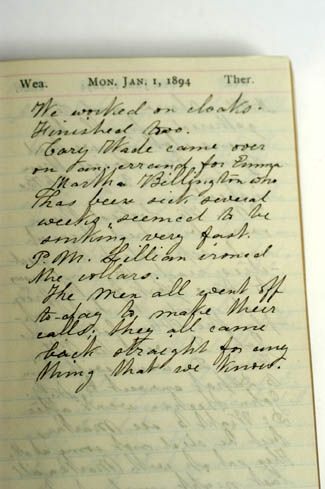 Wea. Mon. Jan. 1, 1894 Ther.
We worked on cloaks.
Finished two.
Cory Wade came over
on an errand for Emma
Martha Billington who
has been sick several
weeks, seemed to be
sinking very fast.
P.M. Lillian ironed
the collars.
The men all went off
to-day to make their
calls. they all came
back straight for any
thing that we know.